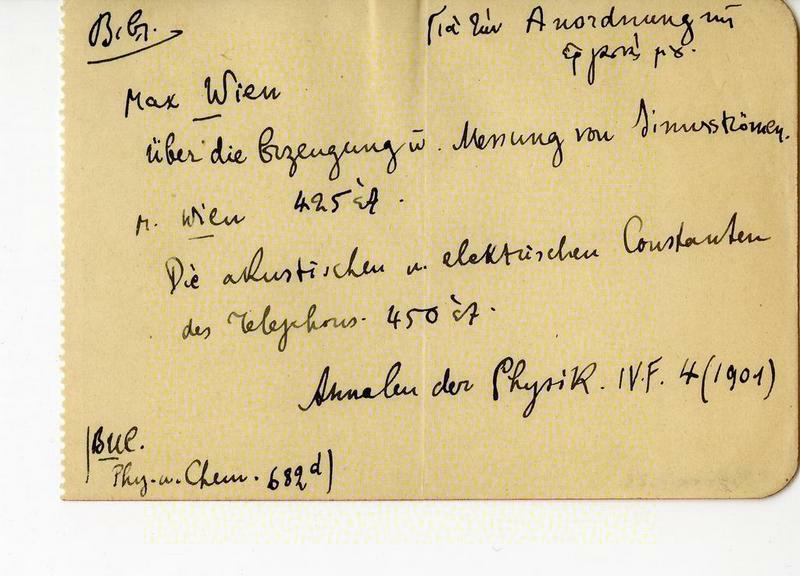 Bibl.
Για τὴν Anordnung
Max Wien
über die Erzeugung u. Messung von Sinusströmen.
425 ἑξ.
M. Wien
Die akustischen u. elektrischen Constanten
des Telephons. 450 ἑξ.
Annalen der Physik. IV.F. 4 (1901)
(BUL.
Phy. u. Chem. 682 d)